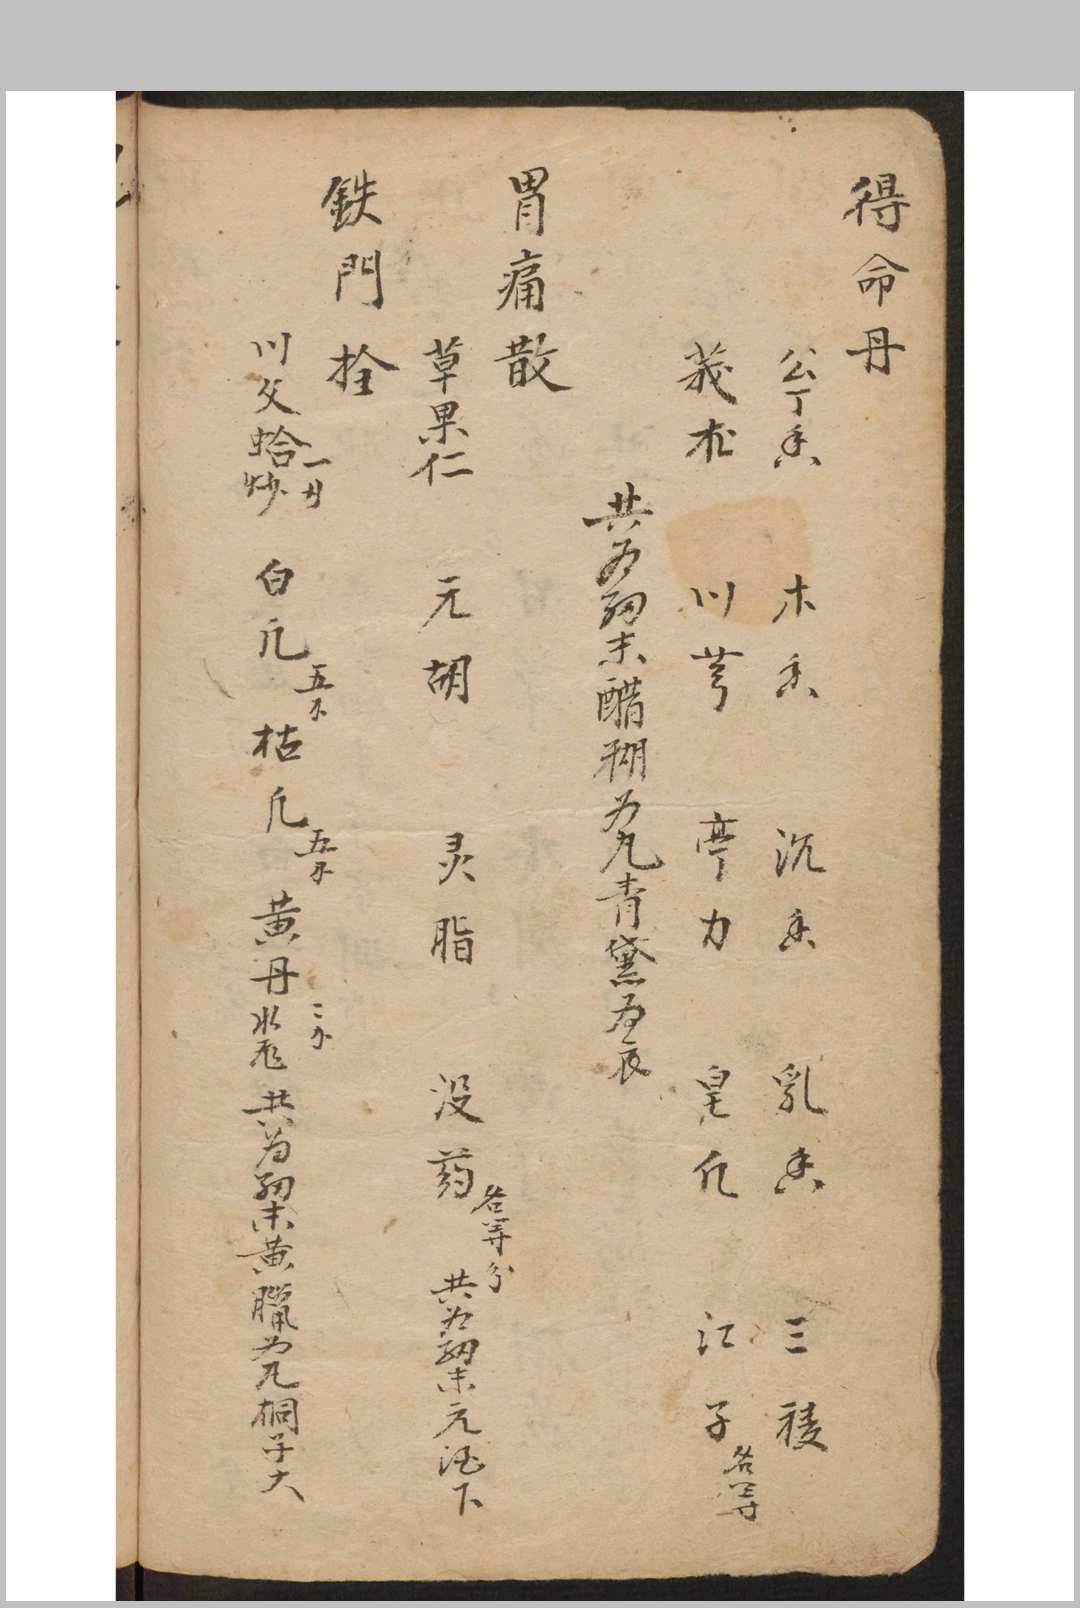 得命丹
公丁香 木香 沉香 乳香 三稜
莪朮 川芎 葶力 皂凢 江子 各等
共为細末醋糊为丸青黛为衣
胃痛散
草果仁 元胡 灵脂 没药 各等分 共为細末元酒下
鉄門拴
川文蛤炒 一 白凢 五 枯凢 五 黄丹水飞 二 共为細末黄臘为丸桐子大